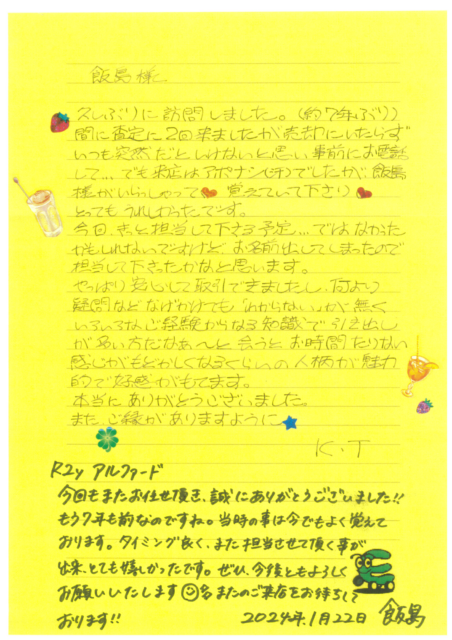 飯島様へ
久しぶりに訪問しました。(約7年ぶり)
間に査定に2回来ましたが売却にいたらず
いつも突然だとしつれいと思い事前にお電話
して... でも来店はアポナシ(汗)でしたが、飯島
様がいらっしゃって 覚えていて下さり
とってもうれしかったです。
今回、きっと担当して下さる予定...ではなかった
かもしれないですけど、お名前出してしまったので
担当して下さったかなと思います。
やっぱり安心して取引できましたし、何より
疑問などなげかけても「わからない」が無く
いろいろなご経験からなる知識で引き出し
が多い方だなぁ〜と会うとお時間たりない
感じがもどかしくなるくらいの人柄が魅力
的で好感がもてます。
本当にありがとうございました。
またご縁がありますように
K.T
R2y アルファード
今回もまたお任せ頂き、誠にありがとうございました!!
もう7年も前なのですね。当時の事は今でもよく覚えて
おります。タイミング良く、また担当させて頂く事が
出来、とても嬉しかったです。ぜひ、今後ともよろしく
お願いいたします またのご来店をお待ちして
おります!!
2024年.1月22日 飯島